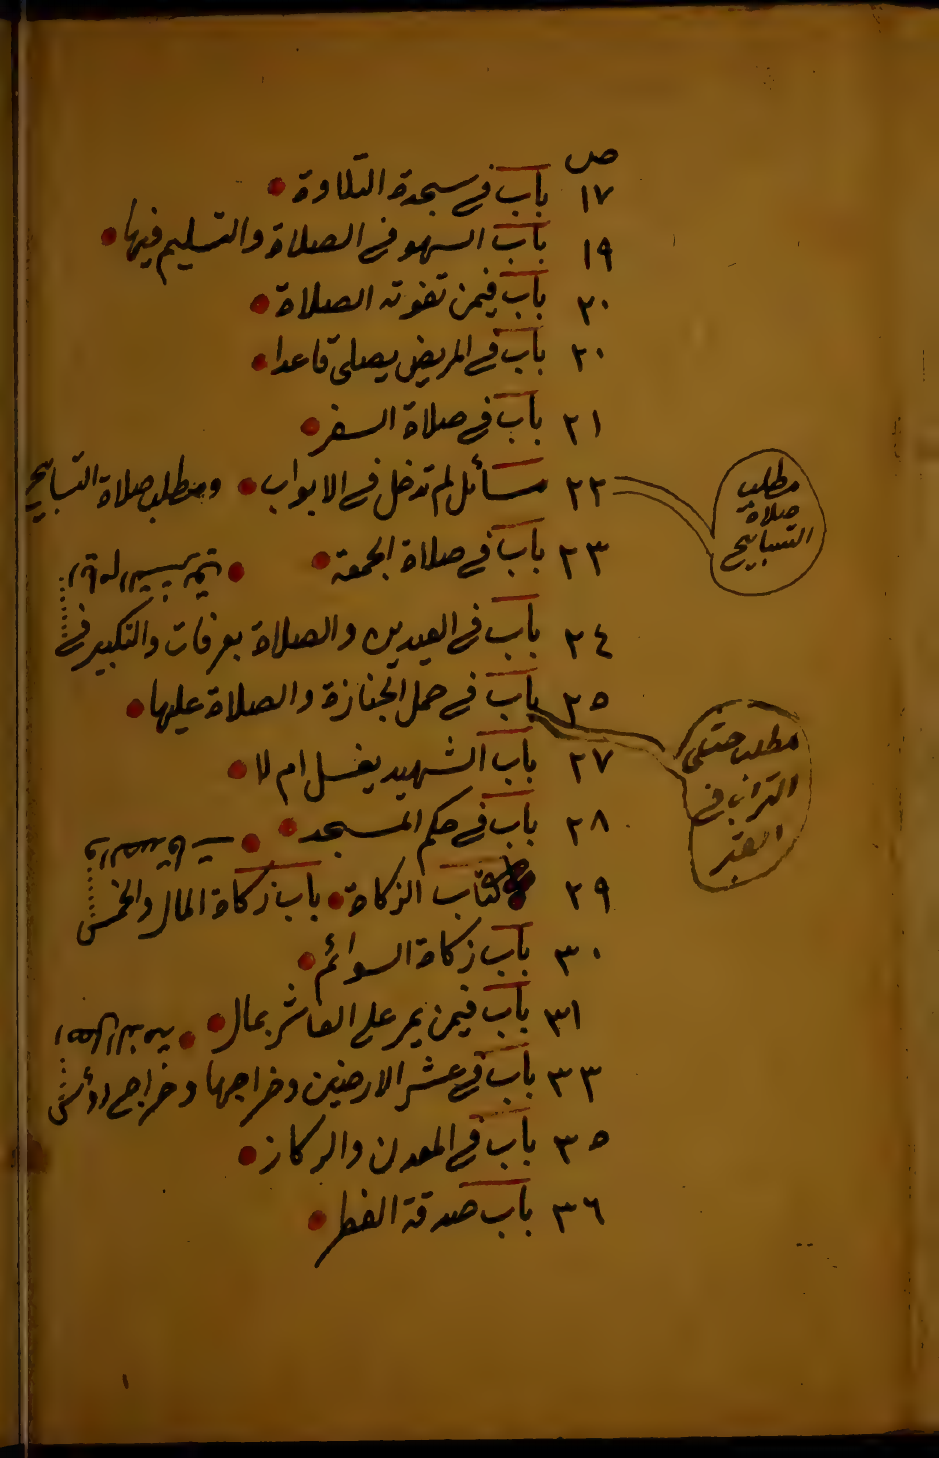 ص
١٧ باب في سجدة التلاوة
١٩ باب السهو في الصلاة والتسليم فيها
٢٠ باب فيمن تفوته الصلاة
٢٠ باب في المريض يصلي قاعدا
٢١ باب في صلاة السفر
٢٢ مسائل لم تدخل في الابواب ومطلب صلاة التسابيح
مطلب
صلاة
التسابيح
٢٣ باب في صلاة الجمعة
٢٤ باب في العيدين والصلاة بعرفات والتكبير في
ايام التشريق
٢٥ باب في حمل الجنازة والصلاة عليها
مطلب حثي
التراب في
القبر
٢٧ باب الشهيد يغسل ام لا
٢٨ باب في حكم المسجد
٢٩ كتاب الزكاة باب زكاة المال والخمس
٣٠ باب زكاة السوائم
٣١ باب فيمن يمر على العاشر بمال
٣٣ باب في عشر الارضين وخراجها وخراج رؤس
٣٥ باب في المعدن والركاز
٣٦ باب صدقة الفطر